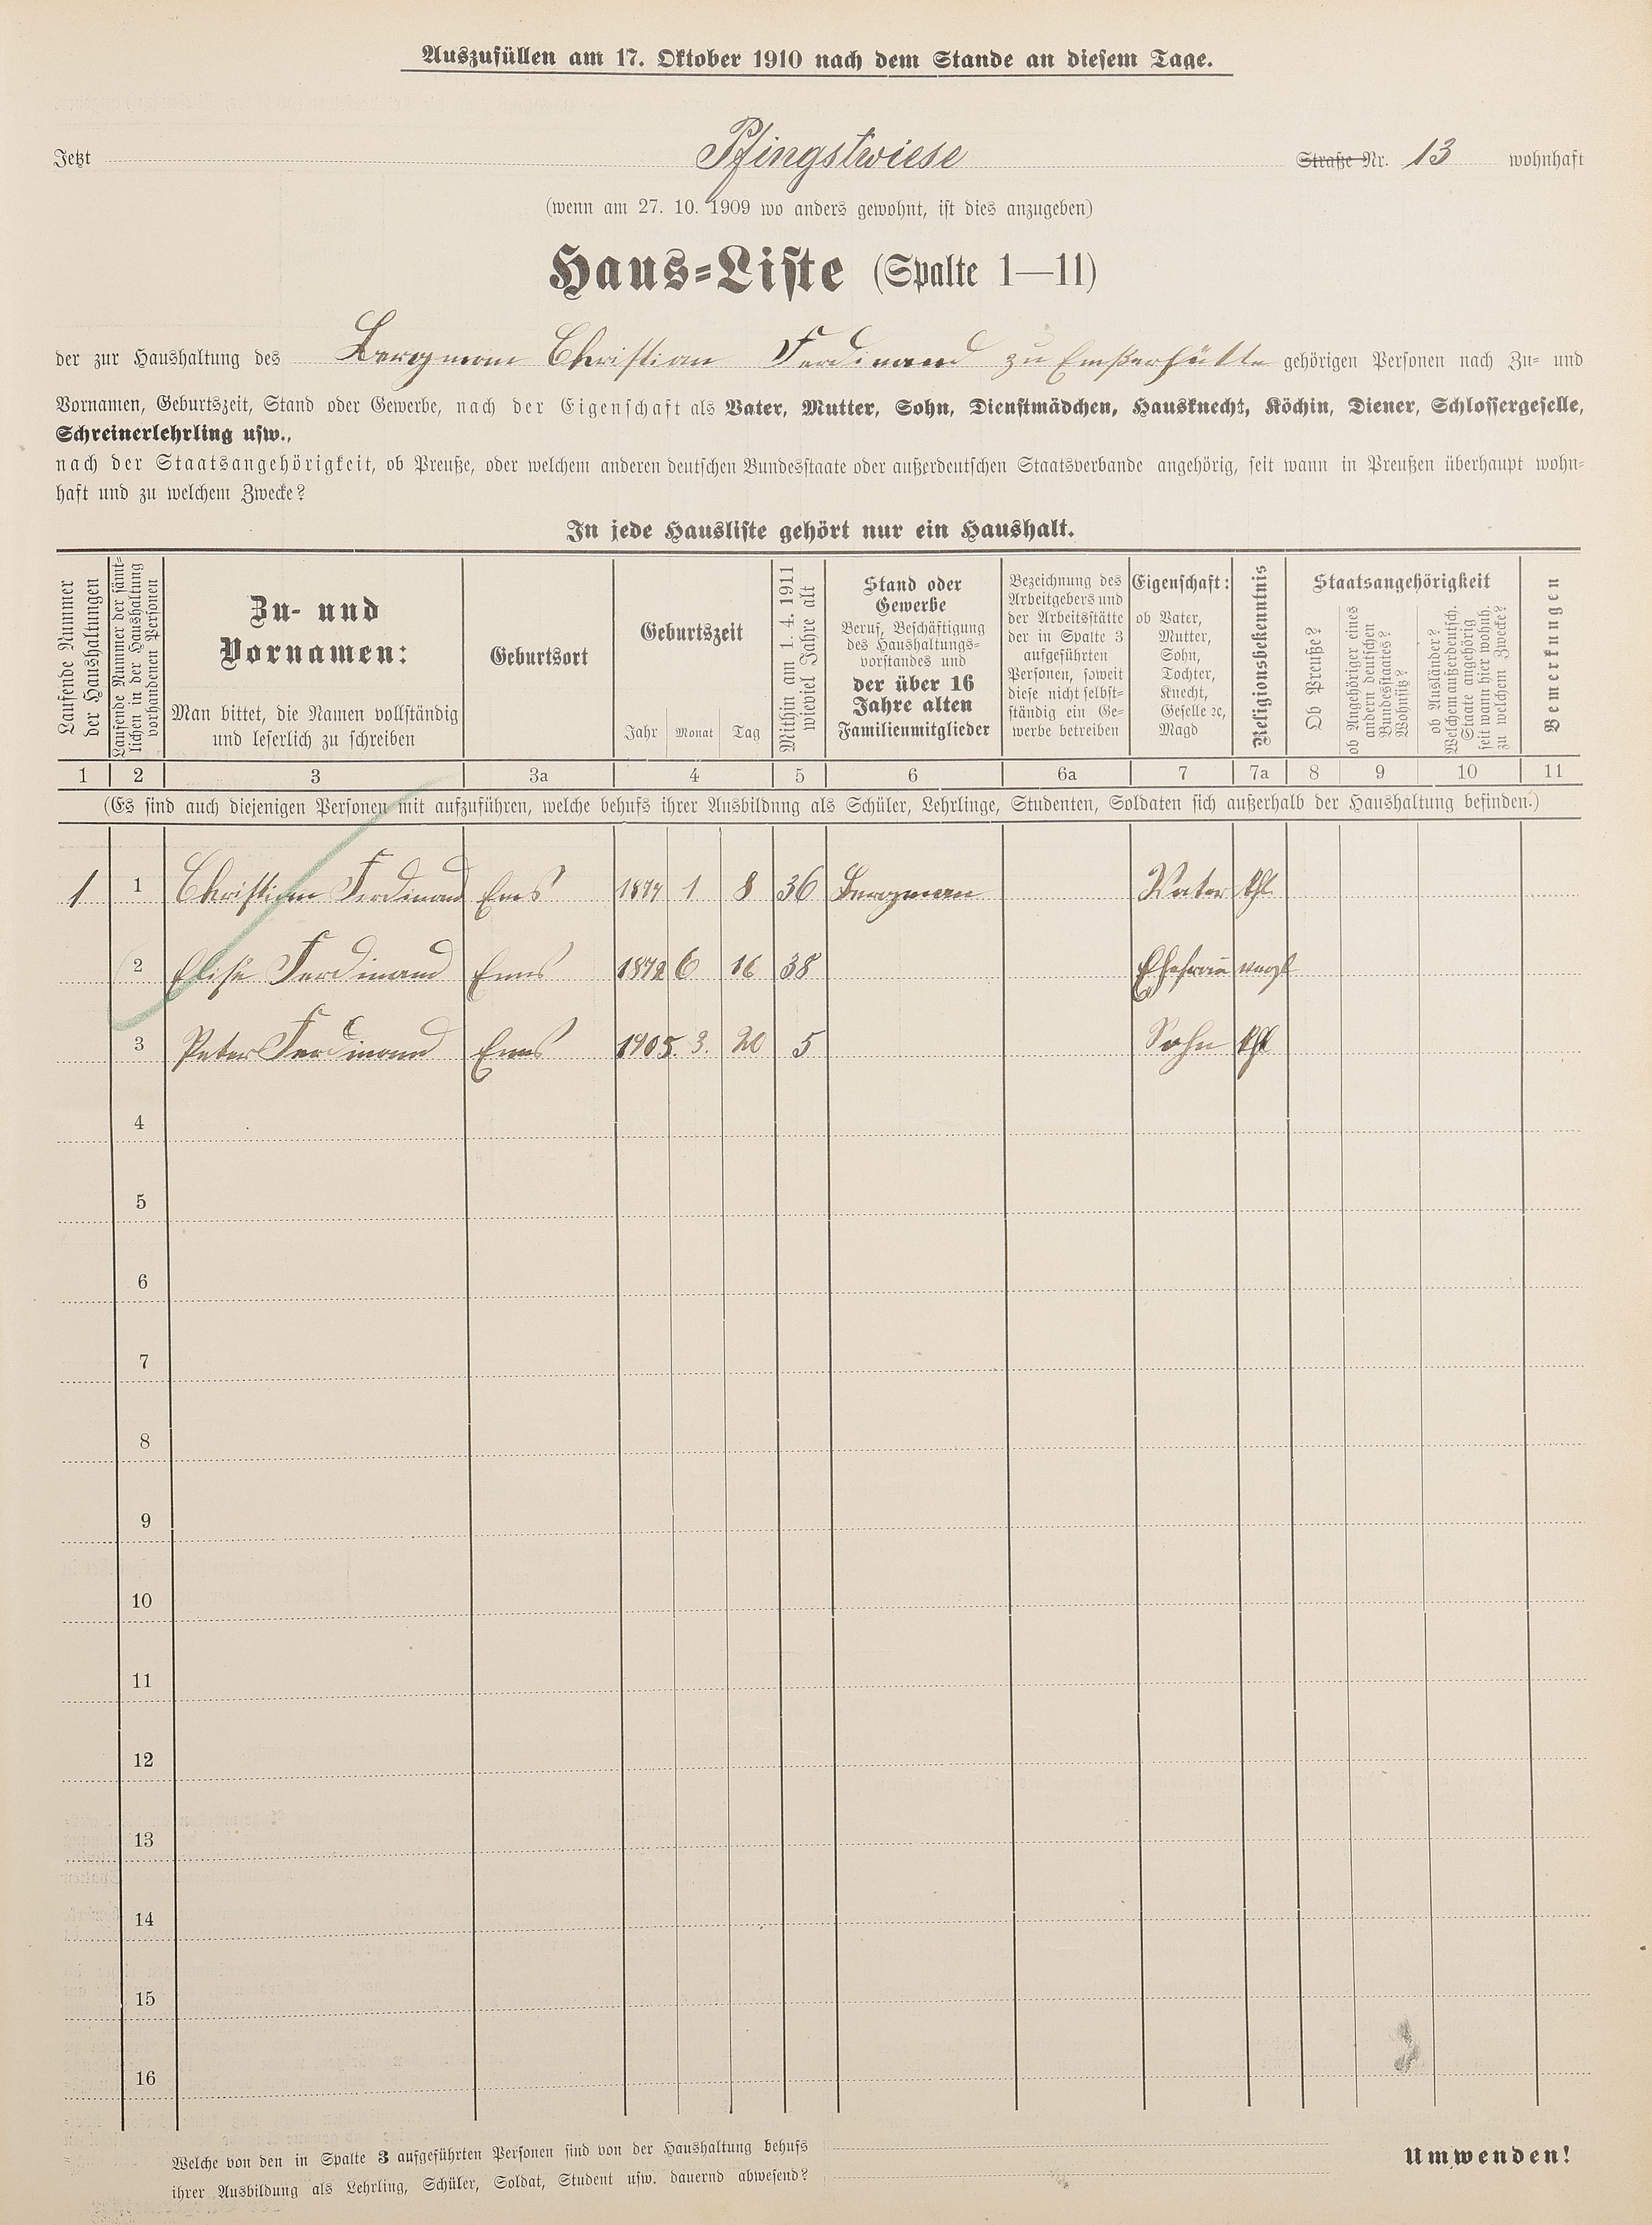 Auszufüllen am 17. Oktober 1910 nach dem Stande an diesem Tage.
Jetzt Pfingstwiese Straße Nr. 13 wohnhaft
(wenn am 27. 10. 1909 wo anders gewohnt, ist dies anzugeben)
Haus-Liste (Spalte 1—11)
der zur Haushaltung des Bergman Christian Ferdinand zu Emßerhütte gehörigen Personen nach Zu- und
Vornamen, Geburtszeit, Stand oder Gewerbe, nach der Eigenschaft als Vater, Mutter, Sohn, Dienstmädchen, Hausknecht, Köchin, Diener, Schlossergeselle,
Schreinerlehrling usw.,
nach der Staatsangehörigkeit, ob Preuße, oder welchem anderen deutschen Bundesstaate oder außerdeutschen Staatsverbande angehörig, seit wann in Preußen überhaupt wohn-
haft und zu welchem Zwecke?
In jede Hausliste gehört nur ein Haushalt.
Laufende Nummer
der Haushaltungen
Laufende Nummer der sämt-
lichen in der Haushaltung
vorhandenen Personen
Zu- und
Vornamen:
Man bittet, die Namen vollständig
und leserlich zu schreiben
Geburtsort
Geburtszeit
Jahr Monat Tag
Mithin am 1. 4. 1911
wieviel Jahre alt
Stand oder
Gewerbe
Beruf, Beschäftigung
des Haushaltungs-
vorstandes und
der über 16
Jahre alten
Familienmitglieder
Bezeichnung des
Arbeitgebers und
der Arbeitsstätte
der in Spalte 3
aufgeführten
Personen, soweit
diese nicht selbst-
ständig ein Ge-
werbe betreiben
Eigenschaft:
ob Vater,
Mutter,
Sohn,
Tochter,
Knecht,
Geselle ꝛc,
Magd
Religionsbekenntnis
Staatsangehörigkeit
Ob Preuße?
ob Angehöriger eines
andern deutschen
Bundesstaates?
Wohnsitz?
ob Ausländer?
Welchem außerdeutsch.
Staate angehörig
seit wann hier wohnh.
zu welchem Zwecke?
Bemerkungen
1 2 3 3a 4 5 6 6a 7 7a 8 9 10 11
(Es sind auch diejenigen Personen mit aufzuführen, welche behufs ihrer Ausbildung als Schüler, Lehrlinge, Studenten, Soldaten sich außerhalb der Haushaltung befinden.)
1 1 Christian Ferdinand Ems 1874 1 8 36 Bergman Vater khl
2 Elise Ferdinand Ems 1872 6 16 38 Ehefrau
3 Peter Ferdinand Ems 1905. 3. 20 5 Sohn khl
4
5
6
7
8
9
10
11
12
13
14
15
16
Welche von den in Spalte 3 aufgeführten Personen sind von der Haushaltung behufs
ihrer Ausbildung als Lehrling, Schüler, Soldat, Student usw. dauernd abwesend?
Umwenden!